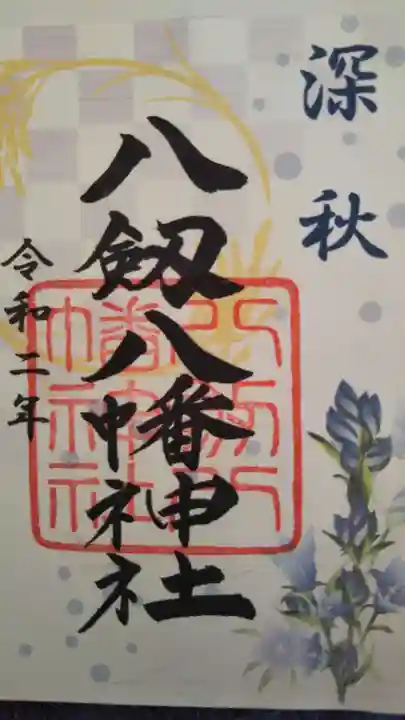 深秋
八剱八幡神社
令和二年
八剱八
幡神社